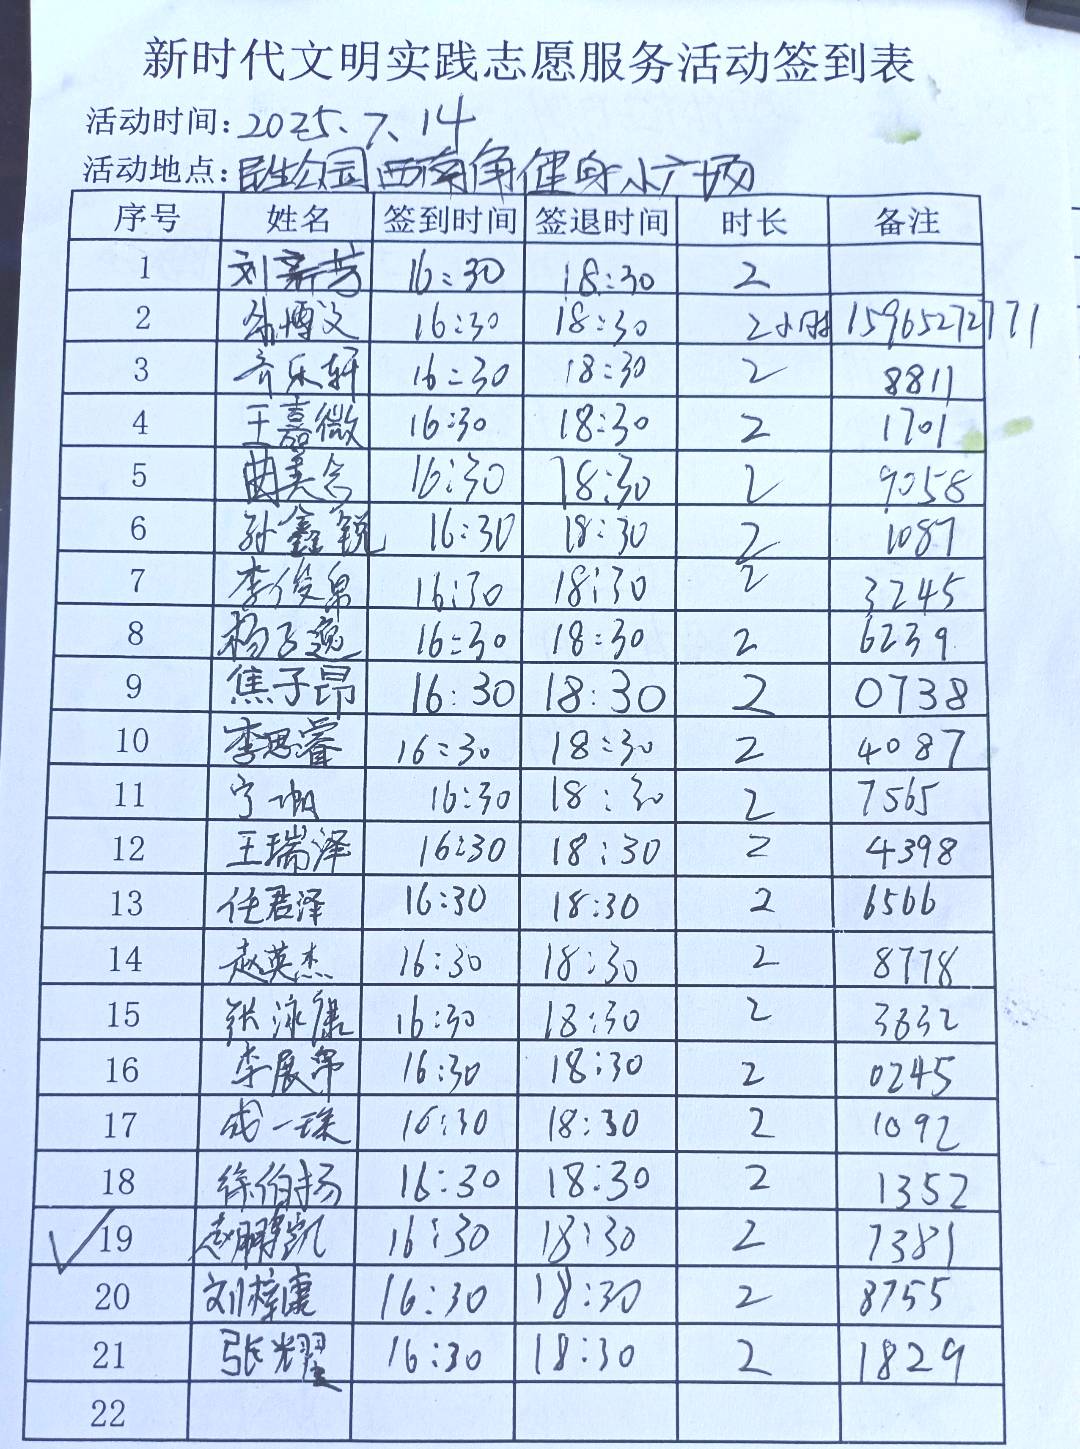 新时代文明实践志愿服务活动签到表
活动时间: 2025.7.14
活动地点: 民生公园西南角健身小广场
序号 姓名 签到时间 签退时间 时长 备注
1 刘新芳 16:30 18:30 2
2 博文 16:30 18:30 2小时 15965272771
3 齐乐轩 16:30 18:30 2 8811
4 王嘉微 16:30 18:30 2 1701
5 曲美含 16:30 18:30 2 9058
6 孙鑫锐 16:30 18:30 2 1087
7 李俊帛 16:30 18:30 2 3245
8 杨子逸 16:30 18:30 2 6239
9 焦子昂 16:30 18:30 2 0738
10 李思睿 16:30 18:30 2 4087
11 宁 16:30 18:30 2 7565
12 王瑞泽 16:30 18:30 2 4398
13 任君泽 16:30 18:30 2 6566
14 赵英杰 16:30 18:30 2 8778
15 张泳康 16:30 18:30 2 3832
16 李展帛 16:30 18:30 2 0245
17 成一珠 16:30 18:30 2 1092
18 徐伯扬 16:30 18:30 2 1352
19 赵鹏凯 16:30 18:30 2 7381
20 刘梓康 16:30 18:30 2 8755
21 张耀 16:30 18:30 2 1829
22